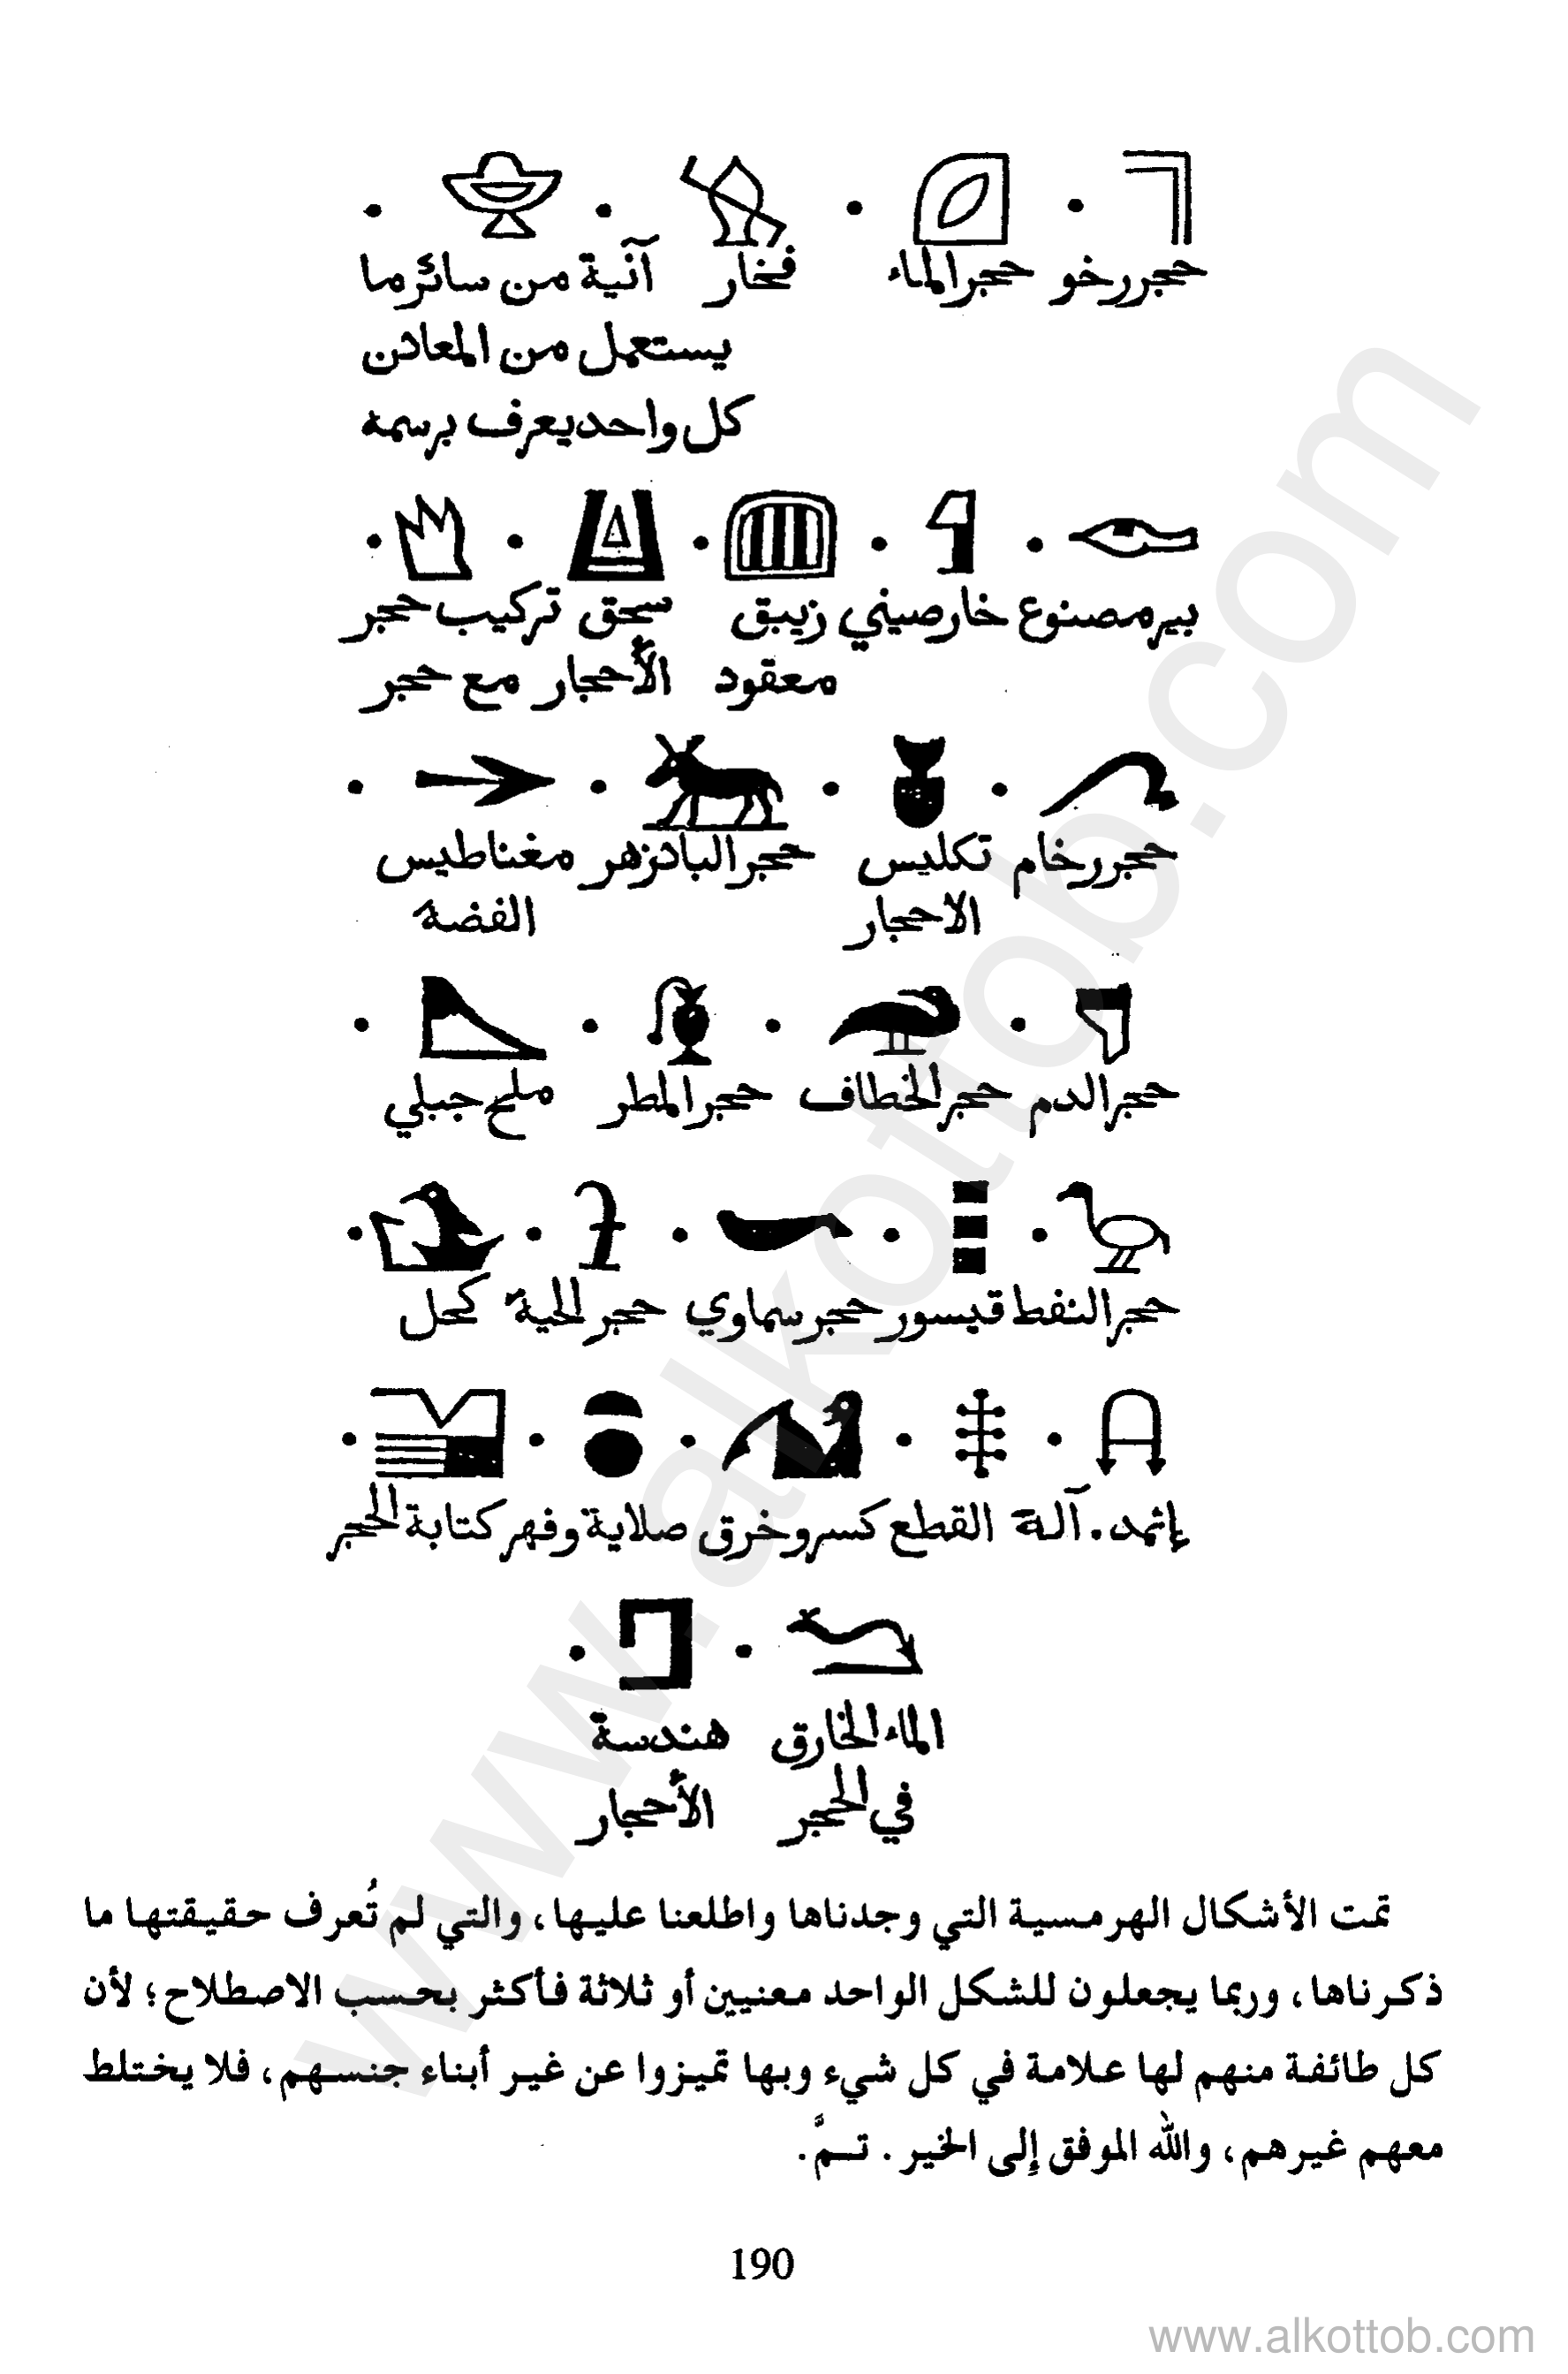 حجر رخو حجر الماء فخار آنية من سائر ما
يستعمل من المعادن
كل واحد يعرف برسمه
بير مصنوع خارصيني زيبق سحق تركيب حجر
معقود الأحجار مع حجر
حجر رخام تكليس حجر البادزهر مغناطيس
الاحجار الفضة
حجر الدم حجر الخطاف حجر المطر ملح جبلي
حجر النفط قيسور حجر سماوي حجر الحية كحل
إثمد. آلة القطع كسر وخرق صلاية وفهر كتابة الحجر
الماء الخارق هندسة
في الحجر الأحجار
تمت الأشكال الهرمسية التي وجدناها واطلعنا عليها، والتي لم تُعرف حقيقتها ما
ذكرناها، وربما يجعلون للشكل الواحد معنيين أو ثلاثة فأكثر بحسب الاصطلاح؛ لأن
كل طائفة منهم لها علامة في كل شيء وبها تميزوا عن غير أبناء جنسهم، فلا يختلط
معهم غيرهم، والله الموفق إلى الخير. تـمَّ.
190
www.alkottob.com
www.alkottob.com